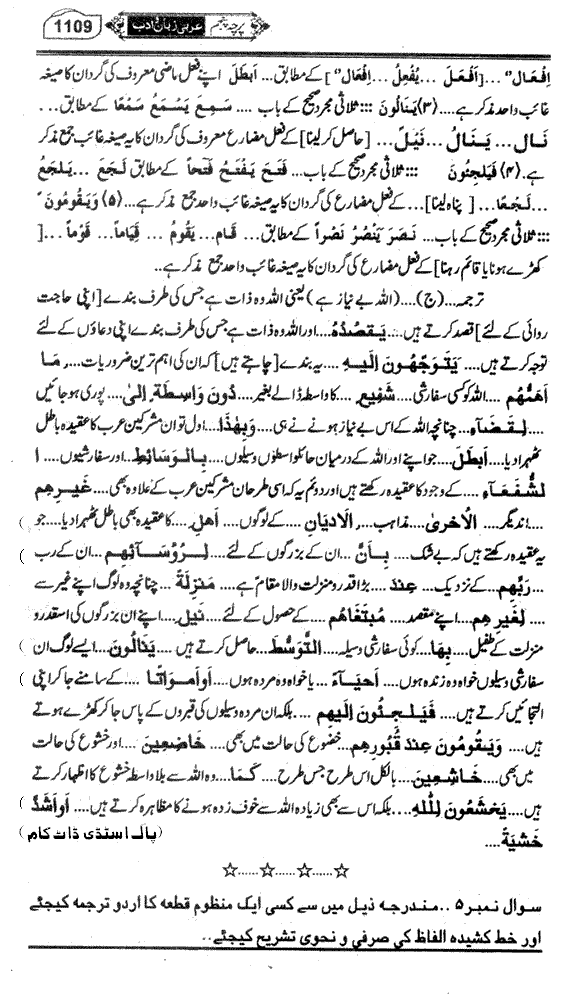 1109 عربی زبان و ادب پرچہ پنجم
اِفْعَال" ... [اَفْعَلَ ... یُفْعِلُ ... اِفْعَال"] کے مطابق ... اَبطَلَ اپنے فعل ماضی معروف کی گردان کا صیغہ
غائب واحد مذکر ہے....(۳) یَنَالُونَ ::: ثلاثی مجرد صحیح کے باب .... سَمِعَ یَسْمَعُ سَمْعًا کے مطابق ...
نَال ... یَنَالُ ... نَیْلً ... [حاصل کر لینا] کے فعل مضارع معروف کی گردان کا یہ صیغہ غائب جمع مذکر
ہے .(۴) فَیَلجَئُونَ ::: ثلاثی مجرد صحیح کے باب ... فَتَحَ یَفْتَحُ فَتْحاً کے مطابق لَجَعَ ... یَلجَعُ
... لَجَعًا ... [پناہ لینا] ... کے فعل مضارع کی گردان کا یہ صیغہ غائب واحد جمع مذکر ہے ... (۵) وَیَقُومُونَ"
::: ثلاثی مجرد صحیح کے باب ... نَصَرَ یَنْصُرُ نَصْراً کے مطابق ... قَام ... یَقُومُ ... قِیَاماً ... قَوْماً ... [
کھڑے ہونا یا قائم رہنا] کے فعل مضارع کی گردان کا یہ صیغہ غائب واحد جمع مذکر ہے ..
ترجمہ ...(ج) ...(اللہ بے نیاز ہے) یعنی اللہ وہ ذات ہے جس کی طرف بندے [اپنی حاجت
روائی کے لئے] قصد کرتے ہیں ... یَقصُدُهُ ... اور اللہ وہ ذات ہے جس کی طرف بندے اپنی دعاؤں کے لئے
توجہ کرتے ہیں .... یَتَوَجَّهُونَ اِلَیهِ .... یہ بندے [چاہتے ہیں] کہ ان کی اہم ترین ضروریات .... مَا
اَهَمُّهُم .... اللہ کو کسی سفارشی .... شَفِیعٍ .... کا واسطہ ڈالے بغیر .... دُونَ وَاسِطَةِ اِلیٰ .... پوری ہو جائیں
.... لِقَضَآءِ .... چنانچہ اللہ کے اس بے نیاز ہونے نے ہی .... وَبِهٰذَا .... اول تو ان مشرکین عرب کا عقیدہ باطل
ٹھہرا دیا .... اَبطَلَ .... جو اپنے اور اللہ کے درمیان حائلوا سطوں وسیلوں .... بِالوَسَائِطِ .... اور سفارشیوں .... ا
لشُّفَعَآءِ .... کے وجود کا عقیدہ رکھتے ہیں اور دوئم یہ کہ اسی طرح ان مشرکین عرب کے علاوہ بھی .... غَیرِهِم
.... دیگر .... الاُخریٰ .... مذاہب .... الاَدیَانِ .... کے لوگوں .... اَهلِ .... کا عقیدہ بھی باطل ٹھہرا دیا .... جو
یہ عقیدہ رکھتے ہیں کہ بے شک .... بِاَنَّ .... ان کے بزرگوں کے لئے .... لِرُؤسَآئِهِم .... ان کے رب
.... رَبِّهِم .... کے نزدیک .... عِندَ .... بڑا قدر و منزلت والا مقام ہے .... مَنزِلَةً .... چنانچہ وہ لوگ اپنے غیر سے
.... لِغَیرِهِم .... اپنے مقصد .... مُبتَغَاهُم .... کے حصول کے لئے .... نَیلَ .... اپنے ان بزرگوں کی اسقدر و
منزلت کے طفیل .... بِهَا .... کوئی سفارشی وسیلہ .... التَّوَسُّطَ .... حاصل کرتے ہیں .... یَنَالُونَ .... ایسے لوگ ان
سفارشی وسیلوں خواہ وہ زندہ ہوں .... اَحیَآءً .... یا خواہ وہ مردہ ہوں .... اَو اَموَاتًا .... کے سامنے جا کر اپنی
التجائیں کرتے ہیں .... فَیَلجَئُونَ اِلَیهِم .... بلکہ ان مردہ وسیلوں کی قبروں کے پاس جا کر کھڑے ہوتے
ہیں .... وَیَقُومُونَ عِندَ قُبُورِهِم .... خضوع کی حالت میں بھی .... خَاضِعِینَ .... اور خشوع کی حالت
میں بھی .... خَاشِعِینَ .... بالکل اس طرح جس طرح .... کَمَا .... وہ اللہ سے بلا واسطہ خشوع کا اظہار کرتے
ہیں .... یَخشَعُونَ لِلّٰهِ .... بلکہ اس سے بھی زیادہ اللہ سے خوف زدہ ہونے کا مظاہرہ کرتے ہیں .... اَو اَشَدَّ
خَشیَةً .... (پاک اسٹڈی ڈاٹ کام)
☆......☆......☆......☆
سوال نمبر ۵ .. مندرجہ ذیل میں سے کسی ایک منظوم قطعہ کا اردو ترجمہ کیجئے
اور خط کشیدہ الفاظ کی صرفی و نحوی تشریح کیجئے ..